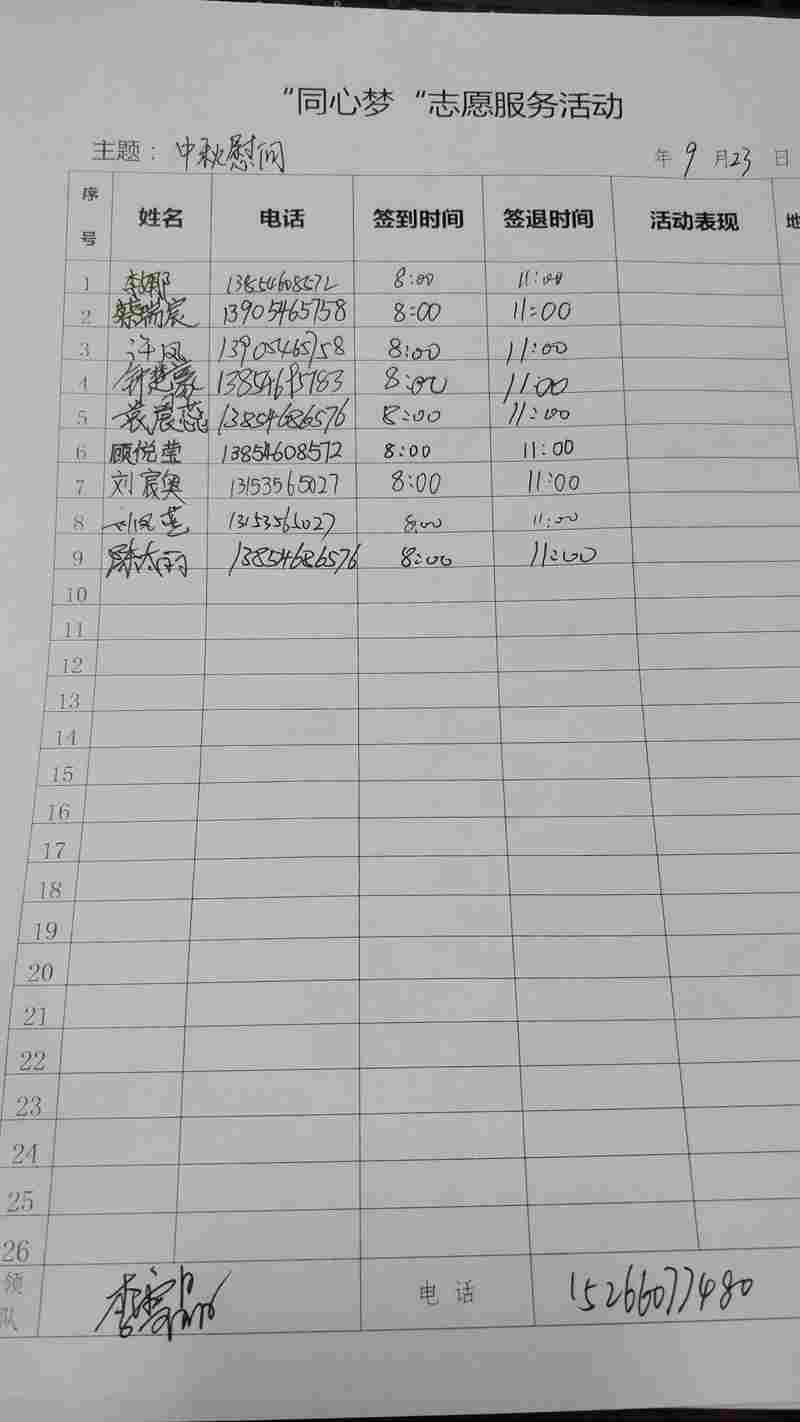 “同心梦“志愿服务活动
主题：中秋慰问 年 9 月 23 日
序号 姓名 电话 签到时间 签退时间 活动表现 地
1 李娜 13854608572 8:00 11:00
2 蔡瑞宸 13905465758 8:00 11:00
3 许凤 13905465758 8:00 11:00
4 13854695783 8:00 11:00
5 袁晨蕊 13854686576 8:00 11:00
6 顾悦莹 13854608572 8:00 11:00
7 刘宸奥 13153565027 8:00 11:00
8 13153565027 8:00 11:00
9 13854686576 8:00 11:00
10
11
12
13
14
15
16
17
18
19
20
21
22
23
24
25
26
领队 电话 15266077480